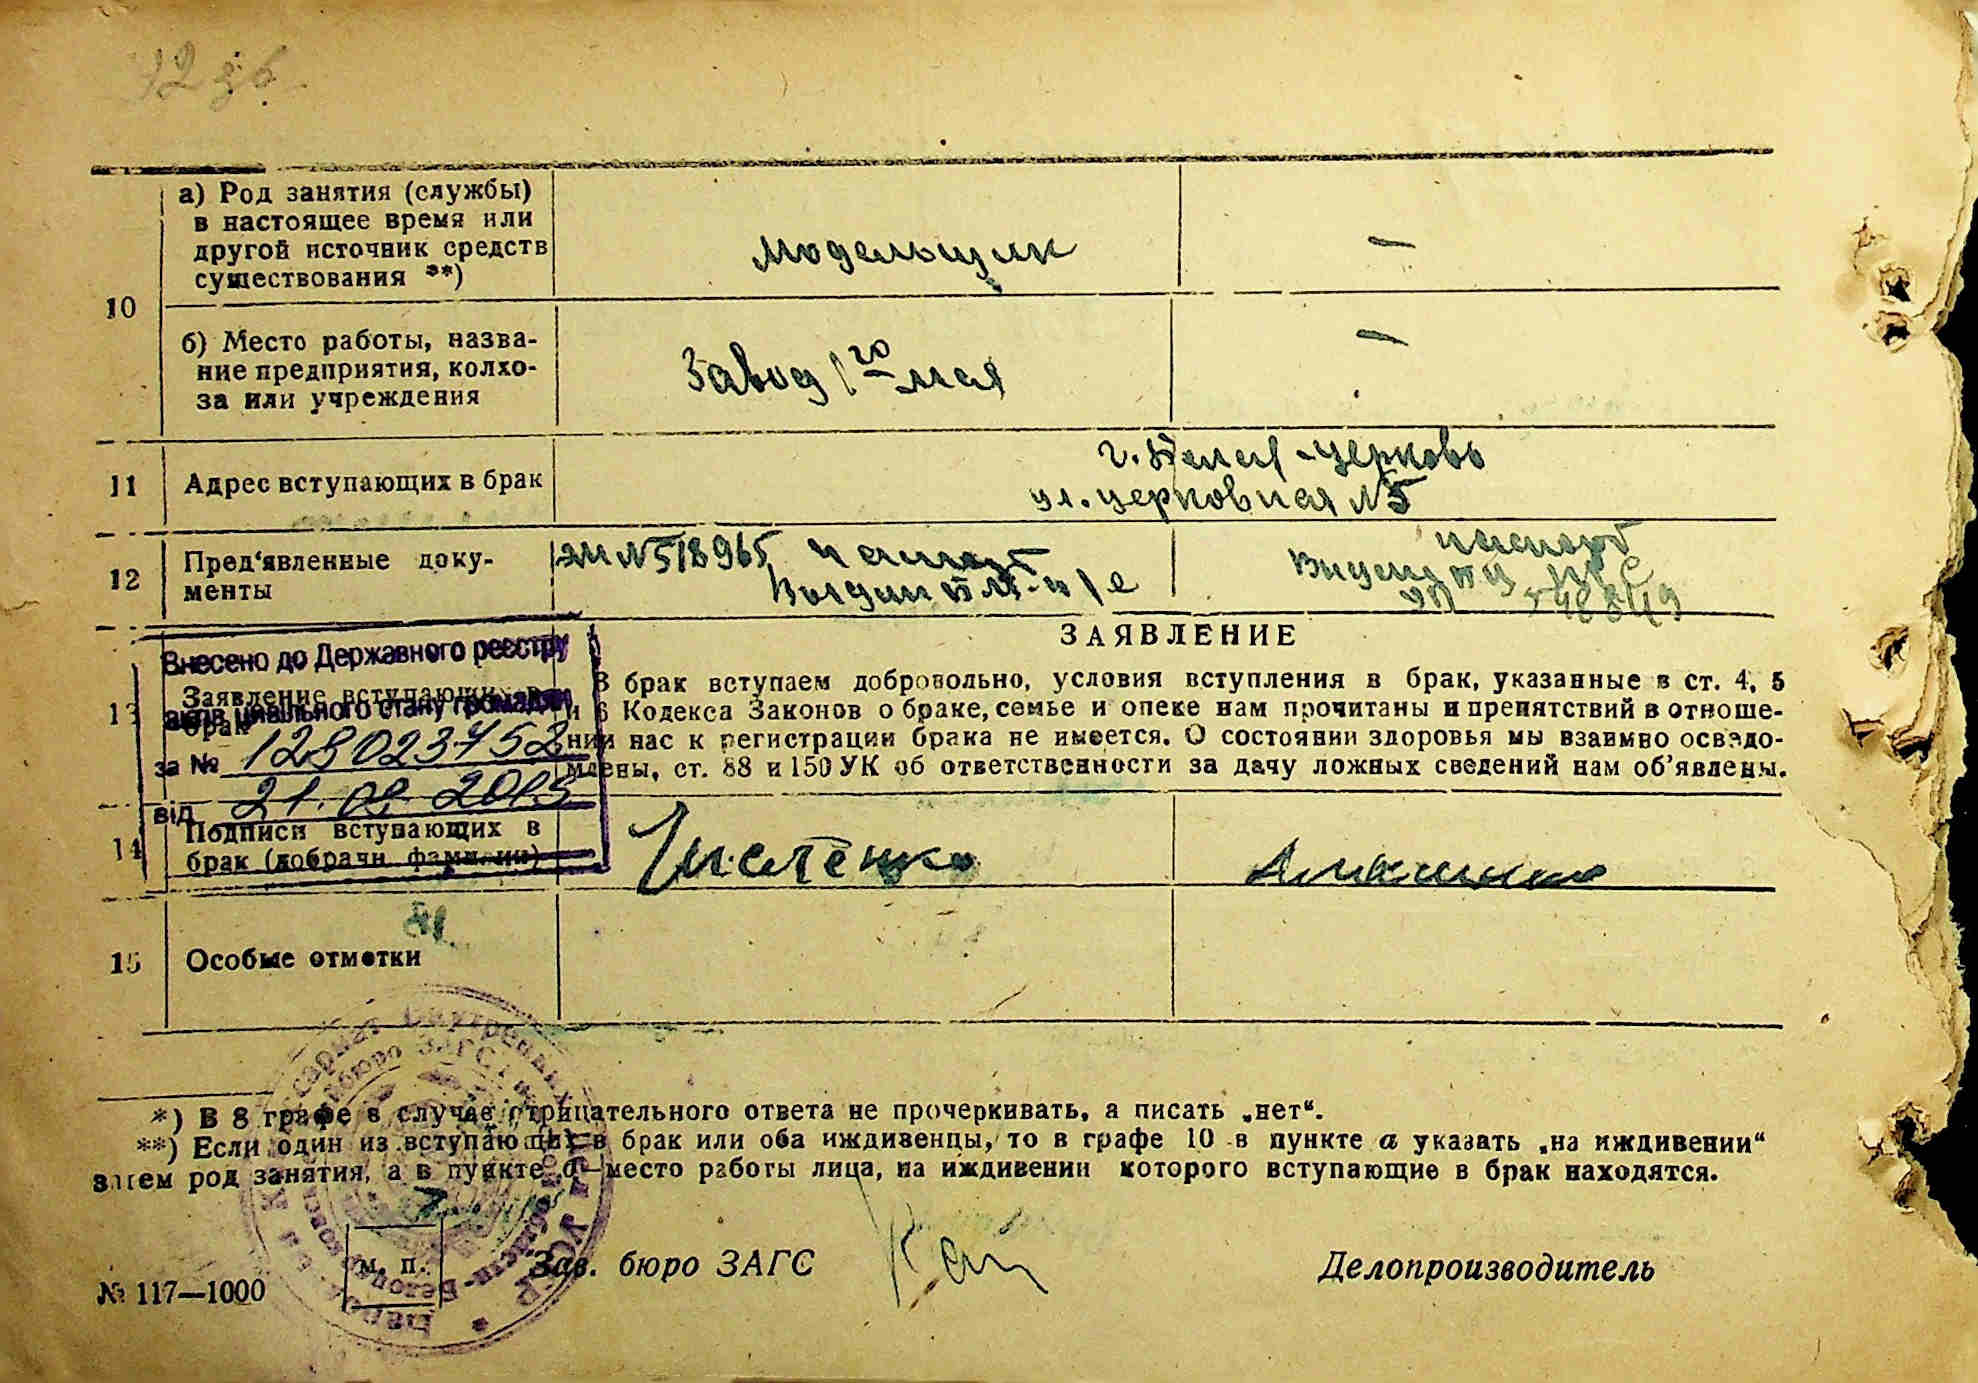 а) Род занятия (службы)
в настоящее время или
другой источник средств
существования **)
модельщик
—
10
б) Место работы, назва-
ние предприятия, колхо-
за или учреждения
Завод 1го мая
—
11
Адрес вступающих в брак
г. Белая-церковь
ул. церковная №5
12
Пред'явленные доку-
менты
ЭМ №518965 паспорт
паспорт
13
Внесено до Державного реєстру
Заявление вступающих в
актів цивільного стану громадян
брак
за № 128023752
від 21.09.2015
ЗАЯВЛЕНИЕ
В брак вступаем добровольно, условия вступления в брак, указанные в ст. 4, 5
и 6 Кодекса Законов о браке, семье и опеке нам прочитаны и препятствий в отноше-
нии нас к регистрации брака не имеется. О состоянии здоровья мы взаимно осведо-
млены, ст. 88 и 150 УК об ответственности за дачу ложных сведений нам об'явлены.
14
Подписи вступающих в
брак (добрачн. фамилии)
15
Особые отметки
*) В 8 графе в случае отрицательного ответа не прочеркивать, а писать „нет“.
**) Если один из вступающих в брак или оба иждивенцы, то в графе 10 в пункте а указать „на иждивении“
затем род занятия, а в пункте б—место работы лица, на иждивении которого вступающие в брак находятся.
№ 117—1000
м. п.
Зав. бюро ЗАГС
Делопроизводитель